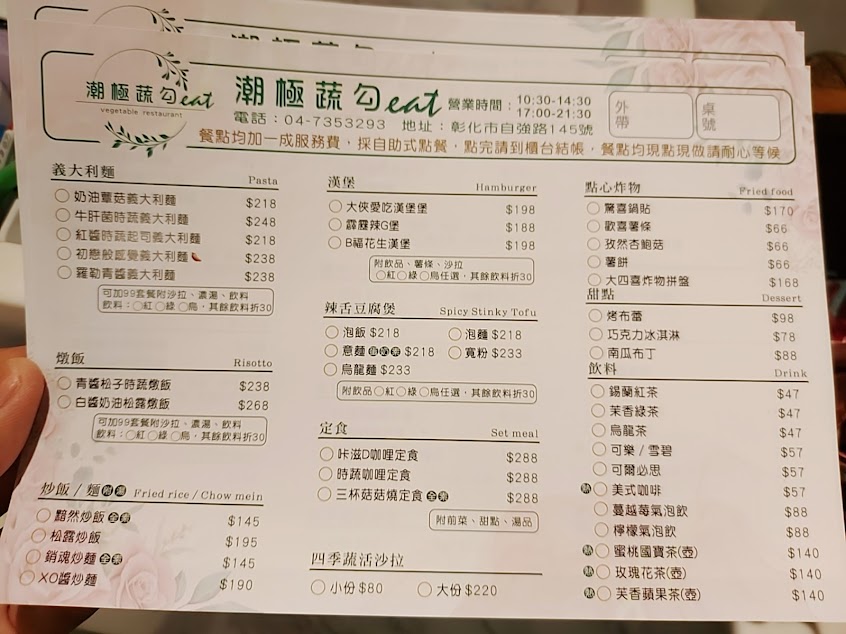 潮極蔬勾eat
vegetable restaurant
潮極蔬勾eat
營業時間：10:30-14:30
17:00-21:30
電話：04-7353293 地址：彰化市自強路145號
外帶
桌號
餐點均加一成服務費，採自助式點餐，點完請到櫃台結帳，餐點均現點現做請耐心等候
義大利麵 Pasta
奶油蕈菇義大利麵 $218
牛肝菌時蔬義大利麵 $248
紅醬時蔬起司義大利麵 $218
初戀般感受義大利麵 $238
羅勒青醬義大利麵 $238
可加99套餐附沙拉、濃湯、飲料
飲料：○紅○綠○烏，其餘飲料折30
燉飯 Risotto
青醬松子時蔬燉飯 $238
白醬奶油松露燉飯 $268
可加99套餐附沙拉、濃湯、飲料
飲料：○紅○綠○烏，其餘飲料折30
炒飯 / 麵 附湯 Fried rice / Chow mein
黯然炒飯 全素 $145
松露炒飯 $195
銷魂炒麵 全素 $145
XO醬炒麵 $190
漢堡 Hamburger
大俠愛吃漢堡堡 $198
霹靂辣G堡 $188
B福花生漢堡 $198
附飲品、薯條、沙拉
○紅○綠○烏任選，其餘飲料折30
辣舌豆腐煲 Spicy Stinky Tofu
泡飯 $218 泡麵 $218
意麵 $218 寬粉 $233
烏龍麵 $233
附飲品○紅○綠○烏任選，其餘飲料折30
定食 Set meal
咔滋D咖哩定食 $288
時蔬咖哩定食 $288
三杯菇菇燒定食 全素 $288
附前菜、甜點、湯品
四季蔬活沙拉
小份 $80 大份 $220
點心炸物 Fried food
驚喜鍋貼 $170
歡喜薯條 $66
孜然杏鮑菇 $66
薯餅 $66
大四喜炸物拼盤 $168
甜點 Dessert
烤布蕾 $98
巧克力冰淇淋 $78
南瓜布丁 $88
飲料 Drink
錫蘭紅茶 $47
茉香綠茶 $47
烏龍茶 $47
可樂 / 雪碧 $57
可爾必思 $57
熱 美式咖啡 $57
蔓越莓氣泡飲 $88
檸檬氣泡飲 $88
熱 蜜桃國寶茶(壺) $140
熱 玫瑰花茶(壺) $140
熱 芙香蘋果茶(壺) $140